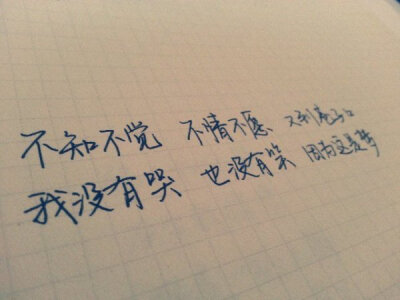 不知不觉 不情不愿 又到巷子口
我没有哭 也没有笑 因为这是梦